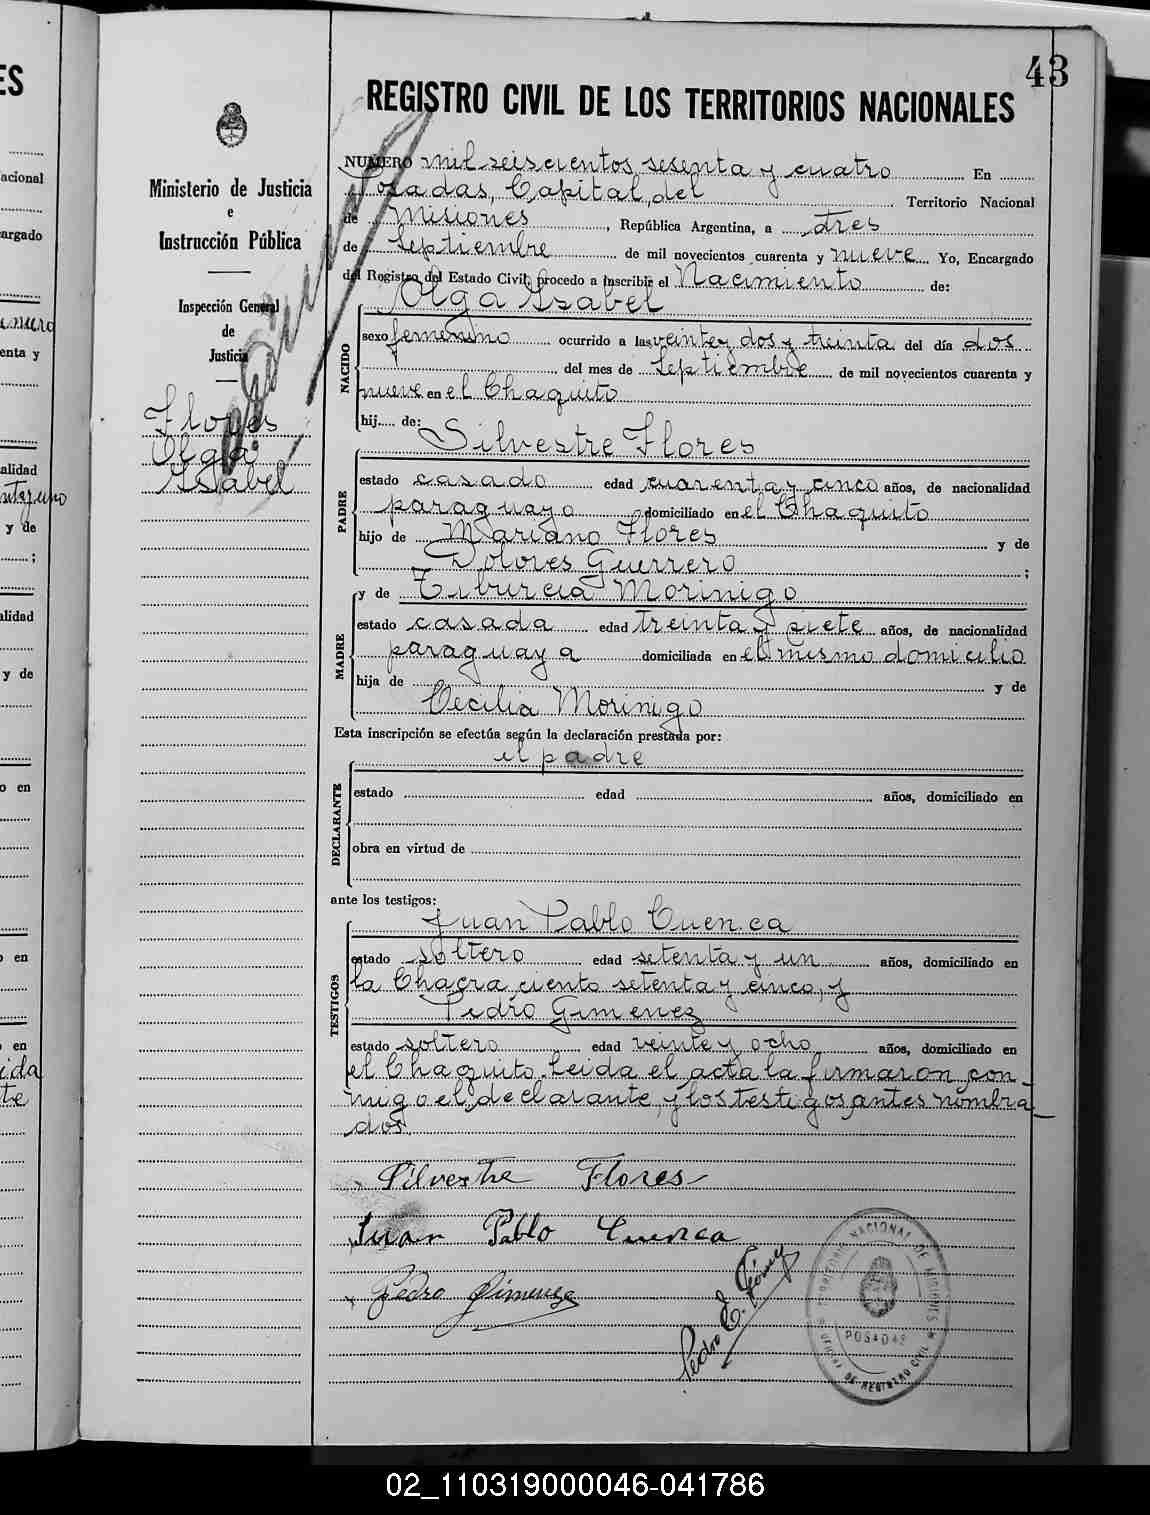 43
REGISTRO CIVIL DE LOS TERRITORIOS NACIONALES
Ministerio de Justicia
e
Instrucción Pública
Inspección General
de
Justicia
Flores
Olga
Isabel
NUMERO mil seiscientos sesenta y cuatro En
Posadas, Capital del Territorio Nacional
de Misiones, República Argentina, a tres
de Septiembre de mil novecientos cuarenta y nueve Yo, Encargado
del Registro del Estado Civil, procedo a inscribir el Nacimiento de:
Olga Isabel
NACIDO
sexo femenino ocurrido a las veinte y dos y treinta del día dos
del mes de Septiembre de mil novecientos cuarenta y
nueve en el Chaquito
hij..... de:
Silvestre Flores
PADRE
estado casado edad cuarenta y cinco años, de nacionalidad
paraguayo domiciliado en el Chaquito
hijo de Mariano Flores y de
Dolores Guerrero ;
y de Tiburcia Morinigo
MADRE
estado casada edad treinta y siete años, de nacionalidad
paraguaya domiciliada en el mismo domicilio
hija de y de
Cecilia Morinigo
Esta inscripción se efectúa según la declaración prestada por:
el padre
DECLARANTE
estado edad años, domiciliado en
obra en virtud de
ante los testigos:
Juan Pablo Cuenca
TESTIGOS
estado soltero edad setenta y un años, domiciliado en
la Chacra ciento setenta y cinco, y
Pedro Gimenez
estado soltero edad veinte y ocho años, domiciliado en
el Chaquito. Leida el acta la firmaron con-
migo el declarante, y los testigos antes nombra-
dos.
Silvestre Flores
Juan Pablo Cuenca
Pedro Gimenez
Pedro E. Gómez
TERRITORIO NACIONAL DE MISIONES
POSADAS
OFICINA DE REGISTRO CIVIL
02_110319000046-041786